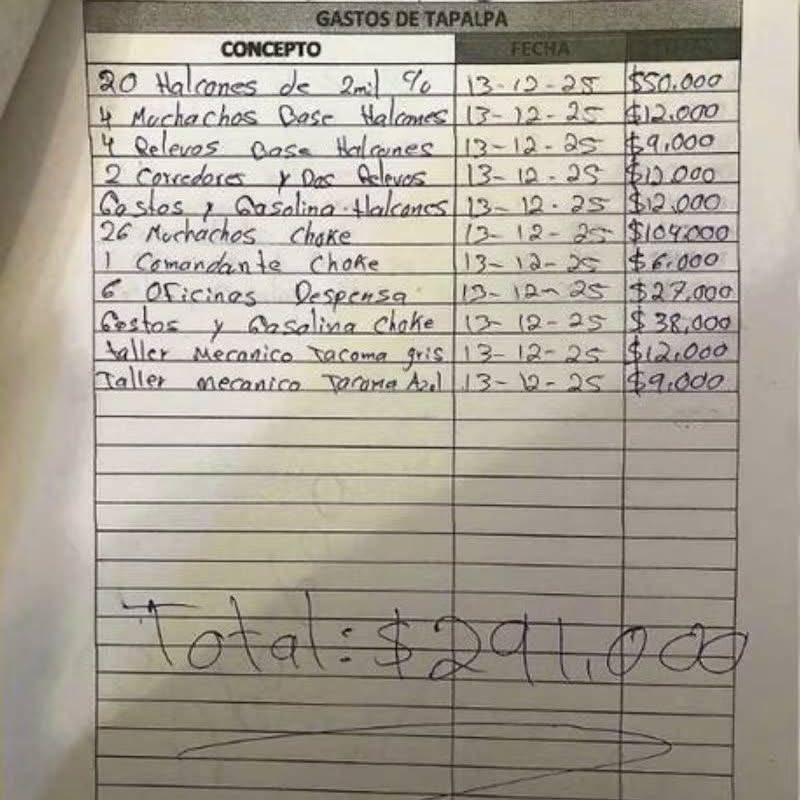 GASTOS DE TAPALPA
CONCEPTO FECHA
20 Halcones de 2mil % 13-12-25 $50.000
4 Muchachos Base Halcones 13-12-25 $12.000
4 Relevos Base Halcones 13-12-25 $9,000
2 Corredores y Dos Relevos 13-12-25 $12.000
Gastos y Gasolina Halcones 13-12-25 $12.000
26 Muchachos Choke 13-12-25 $104.000
1 Comandante Choke 13-12-25 $6.000
6 Oficinas Despensa 13-12-25 $27,000
Gastos y Gasolina Choke 13-12-25 $38,000
taller Mecanico Tacoma gris 13-12-25 $12,000
Taller mecanico Tacoma Azul 13-12-25 $9.000
Total: $291,000